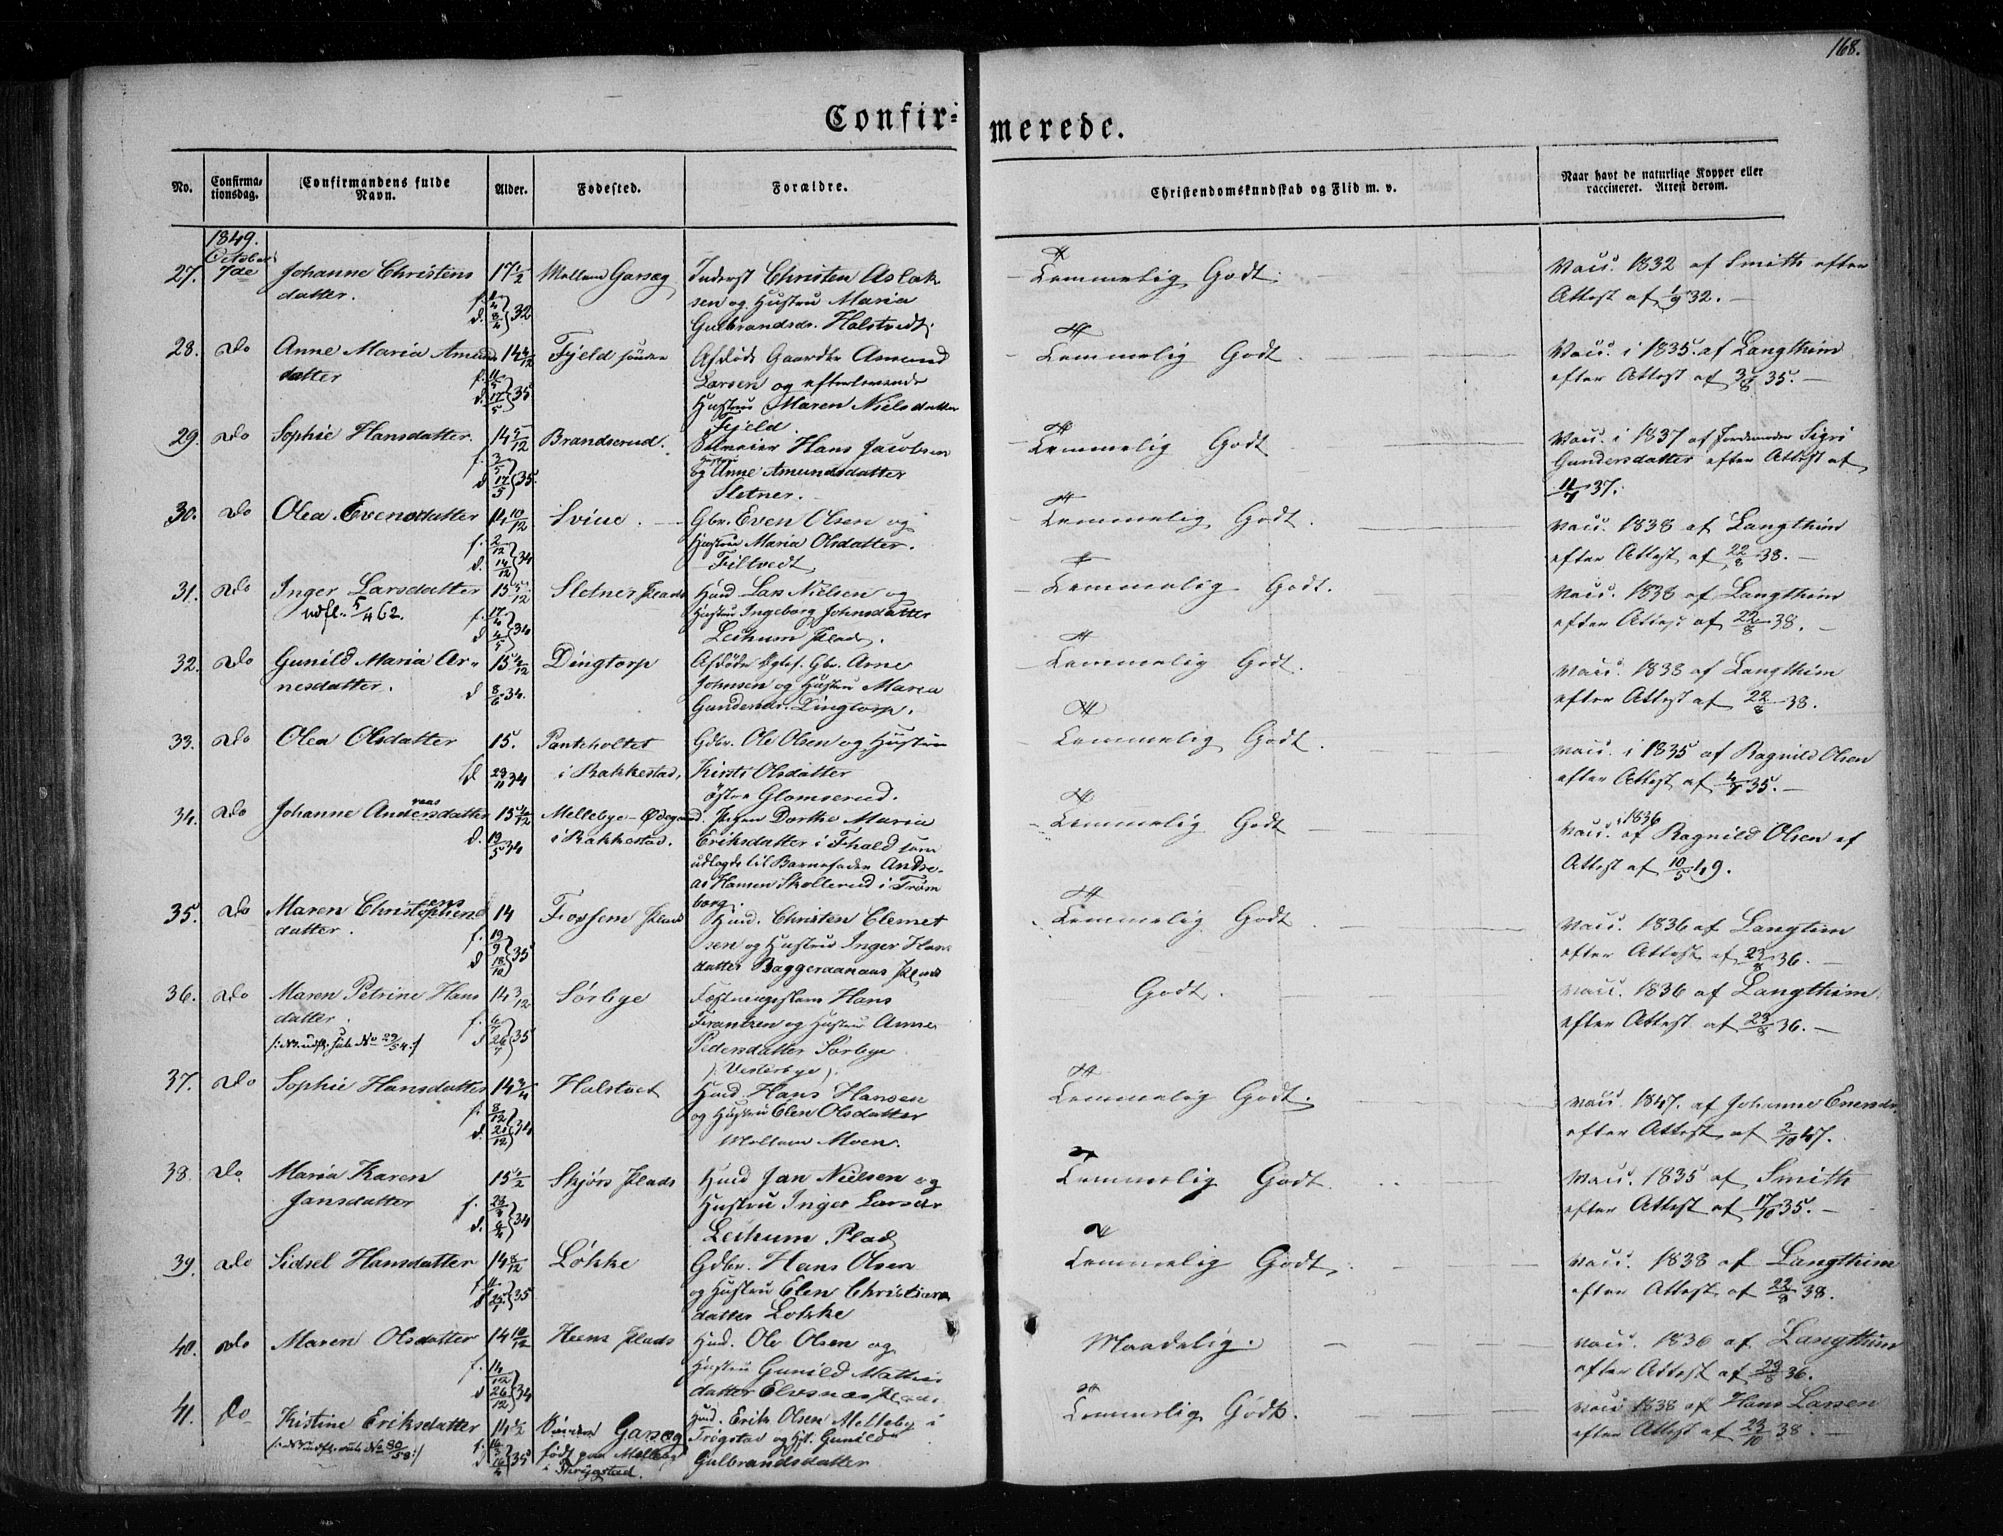 168.
Confir= merede.
No. Confirma-tionsdag. Confirmandens fulde Navn. Alder. Fødested. Forældre. Christendomskundskab og Flid m. v. Naar havt de naturlige Kopper eller vaccineret. Attest derom.
1849.
October
27. 7de Johanne Christens 17 1/2 Mellem Garseg Inderst Christen Aslak Temmelig Godt. Vacc. 1832 af Smith efter
datter. 32 sen og Hustru Maria Attest af 1/9 32.
Gulbrandsdr. Holstvedt.
28. Do Anne Maria Amund 14 Fjeld Afdøde Gaardbr Amund Temmelig Godt. Vacc. i 1835 af Langthim
datter f. d. 17/5 35 Larsen og efterlevende efter Attest af 3/8 35.
Hustru Maren Nielsdatter
Fjeld.
29. Do Sophie Hansdatter. 14 5/12 Brandserud. Selveier Hans Jacobsen Temmelig Godt. Vacc. i 1837 af Jordemoder Sigri
f. 3/5 d. 17/5 35. og Hustru Anne Amundsdatter Gundersdatter efter Attest af
Sletner. 11/7 37.
30. Do Olea Evensdatter 14 10/12 Svine. Gbr. Even Olsen og Temmelig Godt. Vacc. 1838 af Langthim
f. 2/12 d. 14/12 34 Hustru Maria Olsdatter. efter Attest af 22/8 38.
Filtvedt
31. Do Inger Larsdatter 15 5/12 Sletner Plads Huusmd Lars Nielsen og Temmelig Godt. Vacc. 1838 af Langthim
udfl. 5/4 62. f. 17/4 d. 4/5 34 Hustru Ingeborg Johnsdatter efter Attest af 22/8 38.
Leihum Plad.
32. Do Gunild Maria Ar- 15 4/12 Dingtorp Afdøde Gbr. Arne Temmelig Godt. Vacc. 1838 af Langthim
nesdatter. d 8/6 34. Johnsen og Hustru Maria efter Attest af 22/8 38.
Gundersdr. Dingtorp.
33. Do Olea Olsdatter 15. Panteholtet Gdbr. Ole Olsen og Hustru Temmelig Godt. Vacc. i 1835 af Ragnild Olsen
fd 23/11 34 i Rakkestad, Kirsti Olsdatter efter Attest af 35.
østre Glomserud.
34. Do Johanne Andersdatter 15 Mellebye Ødegaard. Pigen Dorthe Maria Temmelig Godt Vacc. 1836 af Ragnild Olsen ef
d. 19/5 34 i Rakkestad. Eriksdatter i Fhald som Attest af 10/5 49.
udlagde til Barnefader Andre-
as Hansen Skollerud i Trøm
borg.
35. Do Maren Christophens 14 Forsem Plads Huusmd. Christen Clemet Temmelig Godt Vacc. 1836 af Langtim
datter. f. 19/9 d 18/10 35 sen og Hustru Inger Hans efter Attest af 23/8 36.
datter Baggeraanaas Plads
36. Do Maren Petrine Hans 14 3/12 Sørbye Fæstningsslave Hans Godt. Vacc. 1836 af Langthim
datter. f. 6/7 d 26/7 35 Frantzen og Hustru Anne efter Attest af 23/8 36.
/: N.B. udfl. sub No 29/54 :/ Pedersdatter Sørbye
/: Vesterbye :/
37. Do Sophie Hansdatter 14 3/4 Holstvet Huusmd. Hans Hansen Temmelig Godt. Vacc. 1847. af Johanne Enersdr,
f. 8/12 d. 21/12 34 og Hustru Elen Olsdatter efter Attest af 2/10 47.
Mellem Moen.
38. Do Maria Karen 15 1/2 Skjørs Plads Huusmd Jan Nielsen og Temmelig Godt Vacc. 1835 af Smith
Jansdatter f. d. 34 Hustru Inger Larsdr efter Attest af 17/10 35.
Leihum Plad
39. Do Sidsel Hansdatter 14 8/12 Løkke Gdbr. Hans Olsen Temmelig Godt, Vacc. 1838 af Langthim
35 og Hustru Elen Christians efter Attest af 22/8 38.
datter Løkke
40. Do Maren Olsdatter 14 10/12 Heens Plads Huusmd. Ole Olsen og Maadelig. Vacc. 1836 af Langthim
f. 14/12 d 26/12 34 Hustru Gunild Mathis efter Attest af 23/8 36.
datter Elvsnæs Plads
41. Do Kistine Eriksdatter 14 1/2 Garseg Huusmd. Erik Olsen Melleby i Temmelig Godt. Vacc 1838 af Hans Larsen
/: N.B. udfl. sub No 80/58 :/ 35 født paa Melleby Trøgstad og Hst. Gunild efter Attest af 23/10 38.
i Thrygstad. Gulbrandsdatter